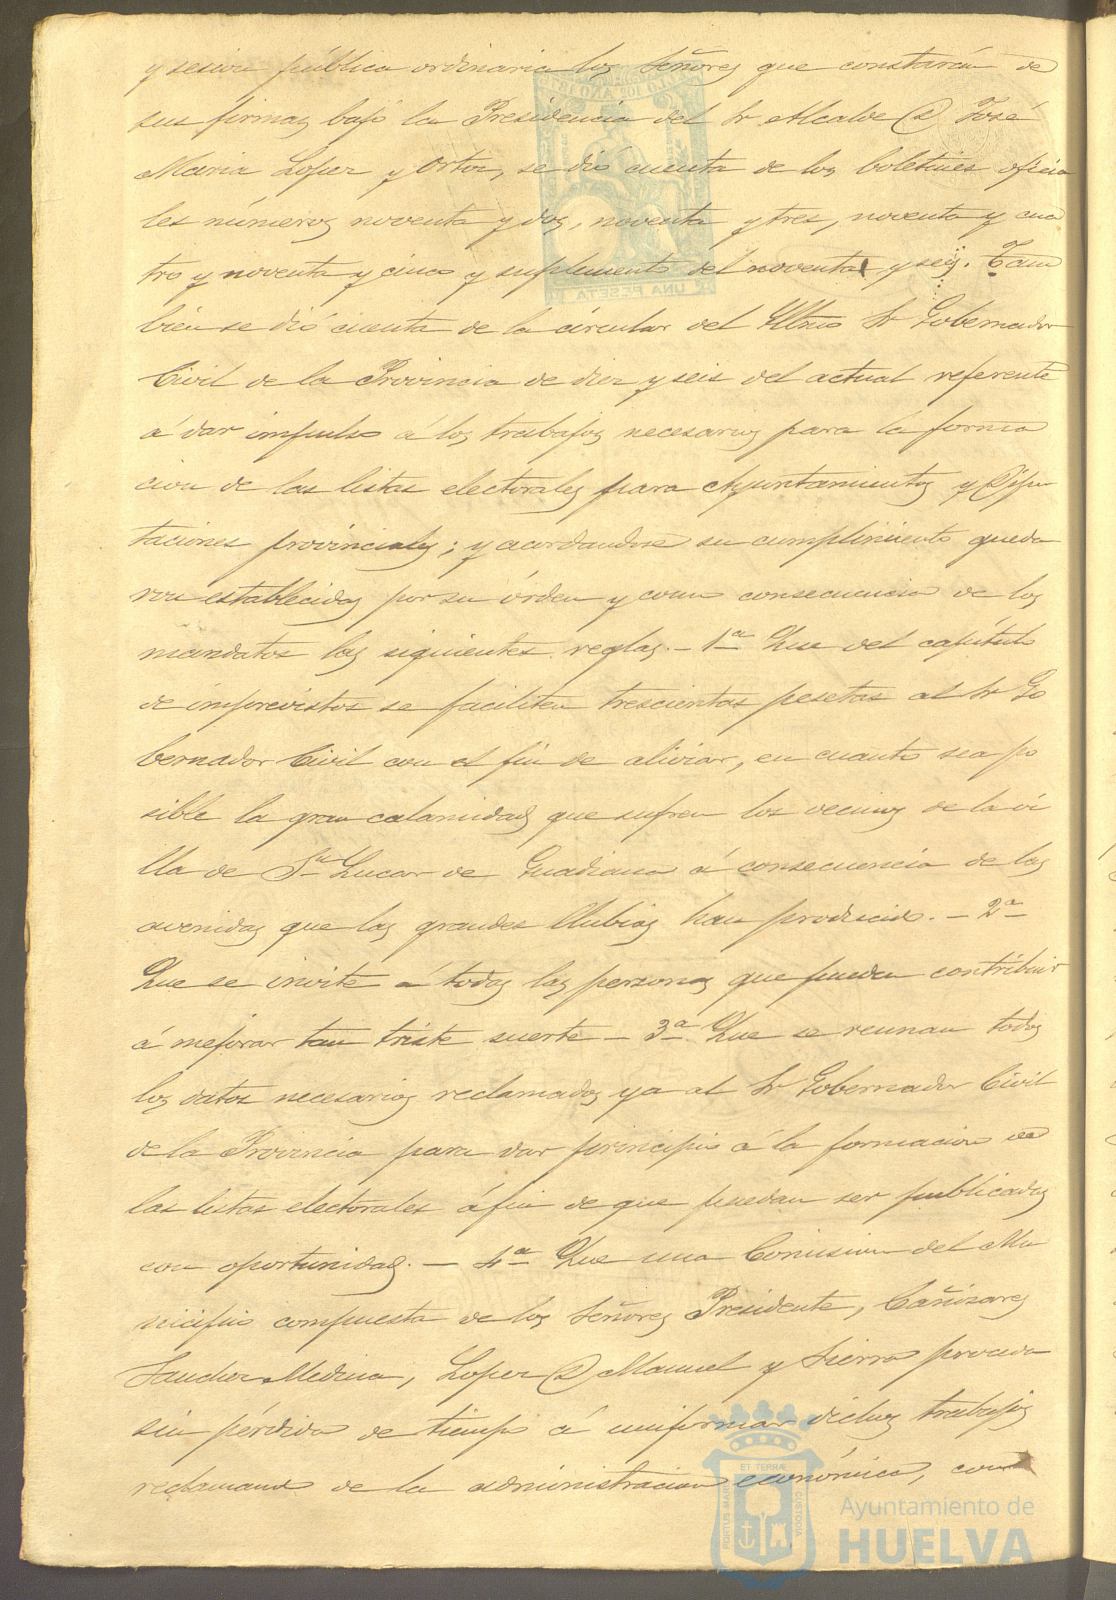 y sesion pública ordinaria los Señores que constarán de
sus firmas bajo la Presidencia del Sr Alcalde D José
Maria Lopez y Ortiz, se dió cuenta de los boletines oficia
les números noventa y dos, noventa y tres, noventa y cua
tro y noventa y cinco y suplemento del noventa y seis. Tam
bien se dió cuenta de la circular del Yltmo Sr Gobernador
Civil de la Provincia de diez y seis del actual referente
á dar impulso á los trabajos necesarios para la forma
cion de las listas electorales para Ayuntamientos y Dipu
taciones provinciales; y acordandose su cumplimiento queda
ron establecidas por su órden y como consecuencia de los
mandatos las siguientes reglas. - 1ª Que del capítulo
de imprevistos se faciliten trescientas pesetas al Sr Go
bernador Civil con el fin de aliviar, en cuanto sea po
sible la gran calamidad que sufren los vecinos de la vi
lla de Sn Lucar de Guadiana á consecuencia de las
avenidas que las grandes llubias han producido. - 2ª
Que se invite á todas las personas que puedan contribuir
á mejorar tan triste suerte - 3ª Que se reunan todos
los datos necesarios reclamados ya al Sr Gobernador Civil
de la Provincia para dar principio á la formacion de
las listas electorales á fin de que puedan ser publicadas
con oportunidad. - 4ª Que una Comision del Mu
nicipio compuesta de los Señores Presidente, Cañizares
Sanchez Medina, Lopez D Manuel y Sierra proceda
sin pérdida de tiempo á uniformar dichos trabajos
reclamando de la administracion económica, como
UNA PESETA
PORTUS MARIS
ET TERRÆ
CUSTODIA
Ayuntamiento de
HUELVA